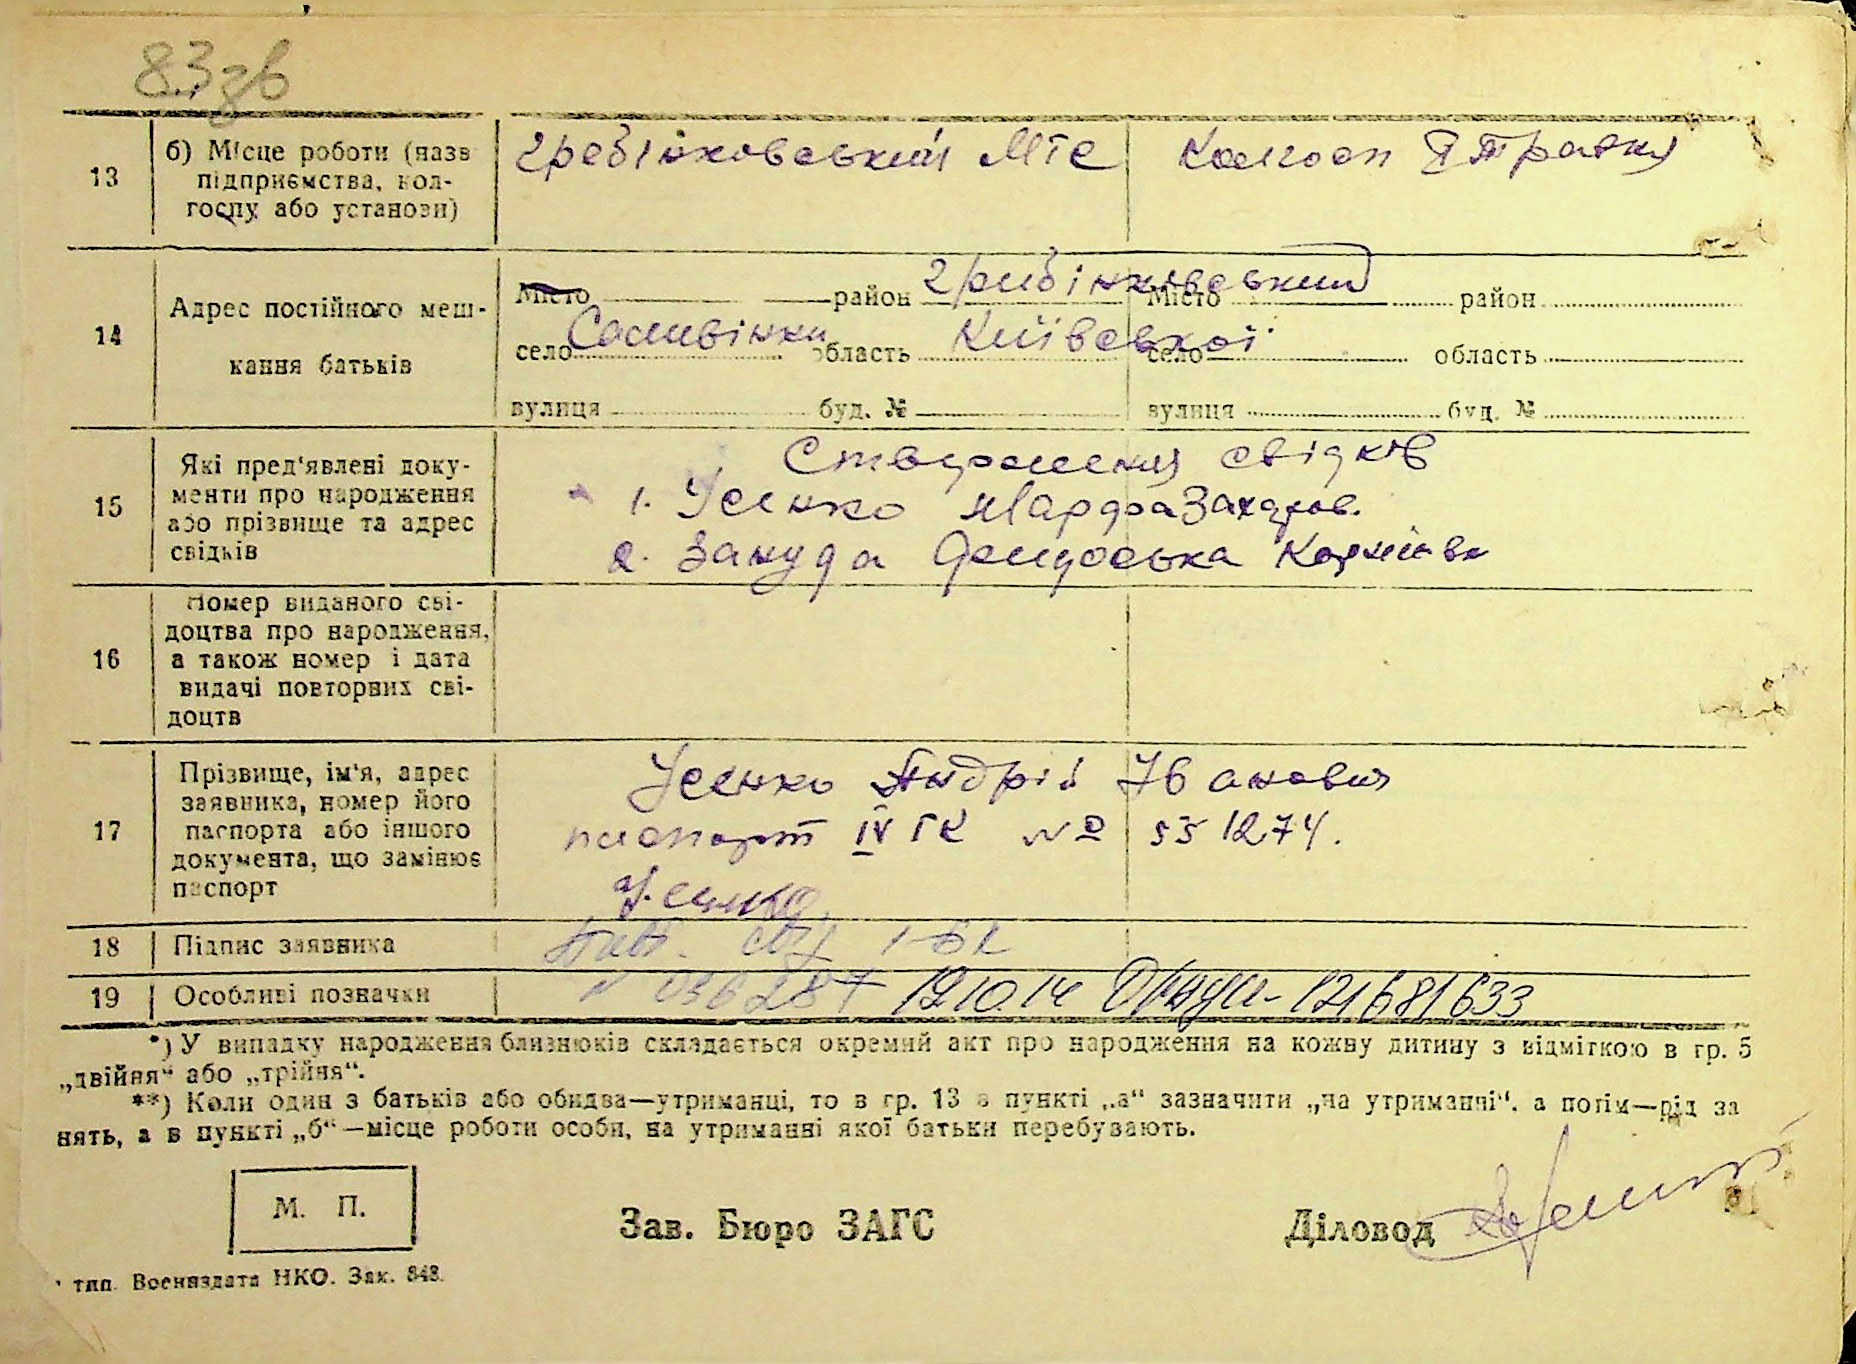 83зв
13
б) Місце роботи (назв
підприємства, кол-
госпу або установи)
Гребінковський МТС
Колгосп 1 Травня
14
Адрес постійного меш-
кання батьків
Місто район Гребінківський
село Саливінки область Київської
вулиця буд. №
Місто район
село область
вулиця буд. №
15
Які пред'явлені доку-
менти про народження
або прізвище та адрес
свідків
свідків
1. Усенко Марфа Захаров.
2. Зануда
16
Номер виданого сві-
доцтва про народження,
а також номер і дата
видачі повторних сві-
доцтв
17
Прізвище, ім'я, адрес
заявника, номер його
паспорта або іншого
документа, що замінює
паспорт
Усенко Андрій Іванович
паспорт IV ГК № 551274.
Усенко
18
Підпис заявника
19
Особливі позначки
036287 19 10.14 121681633
*) У випадку народження близнюків складається окремий акт про народження на кожну дитину з відміткою в гр. 5
„двійня“ або „трійня“.
**) Коли один з батьків або обидва—утриманці, то в гр. 13 в пункті „а“ зазначити „на утриманні“, а потім—рід за
нять, а в пункті „б“—місце роботи особи, на утриманні якої батьки перебувають.
М. П.
Зав. Бюро ЗАГС
Діловод
тип. Воениздата НКО. Зак. 848.